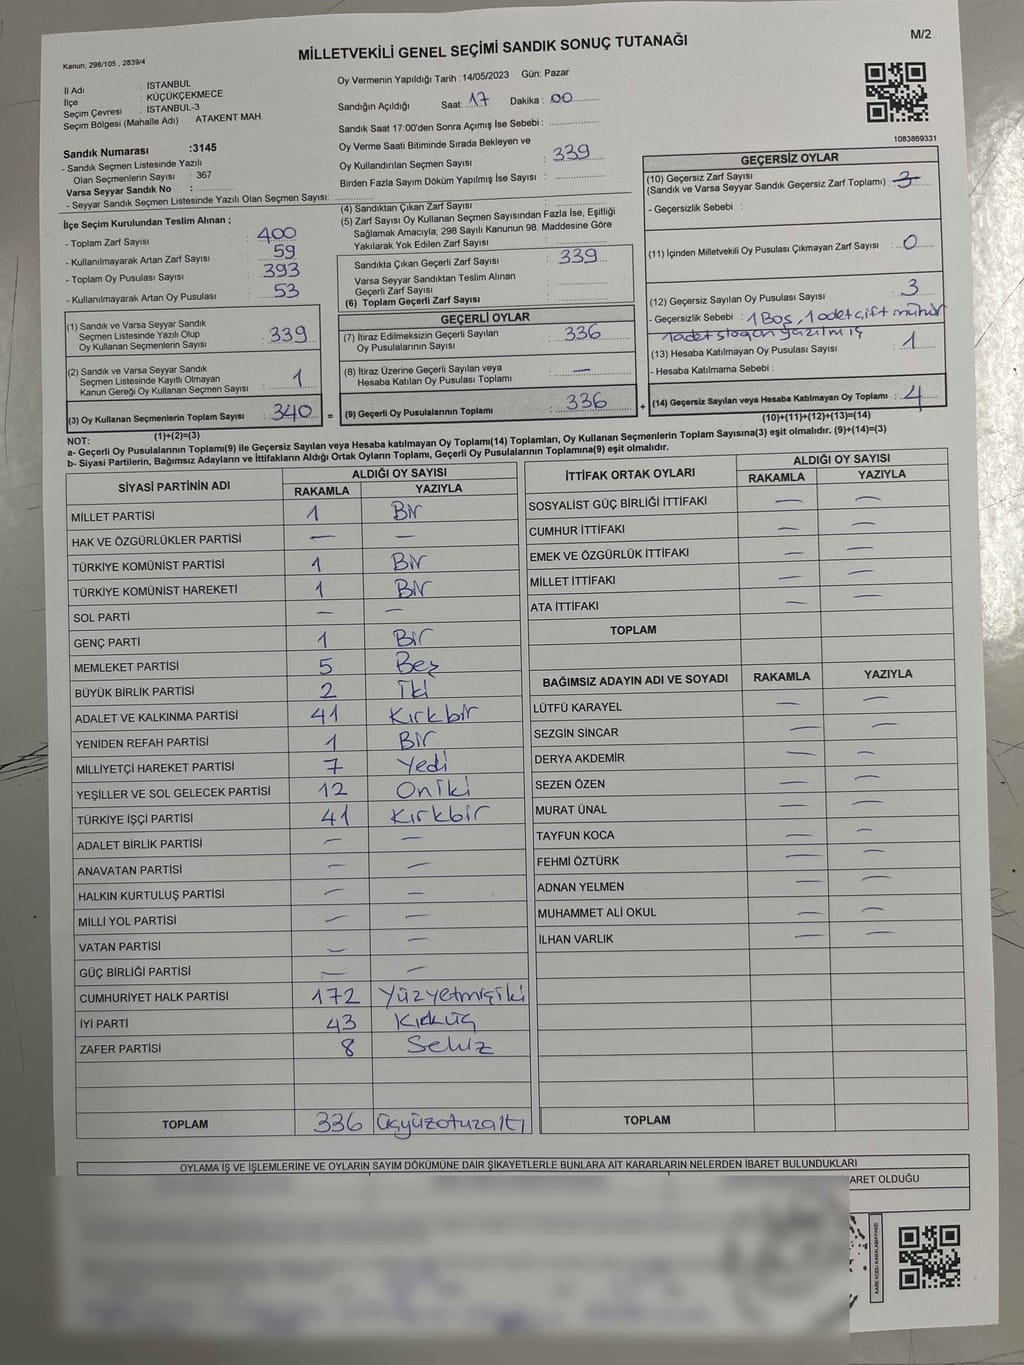 M/2
MİLLETVEKİLİ GENEL SEÇİMİ SANDIK SONUÇ TUTANAĞI
Kanun: 298/105 , 2839/4
İl Adı : İSTANBUL
İlçe : KÜÇÜKÇEKMECE
Seçim Çevresi : İSTANBUL-3
Seçim Bölgesi (Mahalle Adı) : ATAKENT MAH.
Sandık Numarası :3145
- Sandık Seçmen Listesinde Yazılı
Olan Seçmenlerin Sayısı : 367
Varsa Seyyar Sandık No :
- Seyyar Sandık Seçmen Listesinde Yazılı Olan Seçmen Sayısı:
İlçe Seçim Kurulundan Teslim Alınan ;
- Toplam Zarf Sayısı : 400
- Kullanılmayarak Artan Zarf Sayısı : 59
- Toplam Oy Pusulası Sayısı : 393
- Kullanılmayarak Artan Oy Pusulası : 53
(1) Sandık ve Varsa Seyyar Sandık
Seçmen Listesinde Yazılı Olup
Oy Kullanan Seçmenlerin Sayısı : 339
(2) Sandık ve Varsa Seyyar Sandık
Seçmen Listesinde Kayıtlı Olmayan
Kanun Gereği Oy Kullanan Seçmen Sayısı : 1
(3) Oy Kullanan Seçmenlerin Toplam Sayısı : 340 =
(1)+(2)=(3)
Oy Vermenin Yapıldığı Tarih :14/05/2023 Gün: Pazar
Sandığın Açıldığı Saat: 17 Dakika : 00
Sandık Saat 17:00'den Sonra Açımış İse Sebebi :
Oy Verme Saati Bitiminde Sırada Bekleyen ve
Oy Kullandırılan Seçmen Sayısı : 339
Birden Fazla Sayım Döküm Yapılmış İse Sayısı :
(4) Sandıktan Çıkan Zarf Sayısı :
(5) Zarf Sayısı Oy Kullanan Seçmen Sayısından Fazla İse, Eşitliği
Sağlamak Amacıyla; 298 Sayılı Kanunun 98. Maddesine Göre
Yakılarak Yok Edilen Zarf Sayısı :
Sandıkta Çıkan Geçerli Zarf Sayısı : 339
Varsa Seyyar Sandıktan Teslim Alınan
Geçerli Zarf Sayısı :
(6) Toplam Geçerli Zarf Sayısı :
GEÇERLİ OYLAR
(7) İtiraz Edilmeksizin Geçerli Sayılan
Oy Pusulalarının Sayısı : 336
(8) İtiraz Üzerine Geçerli Sayılan veya
Hesaba Katılan Oy Pusulası Toplamı : —
(9) Geçerli Oy Pusulalarının Toplamı : 336 +
1083869331
GEÇERSİZ OYLAR
(10) Geçersiz Zarf Sayısı
(Sandık ve Varsa Seyyar Sandık Geçersiz Zarf Toplamı) : 3
- Geçersizlik Sebebi :
(11) İçinden Milletvekili Oy Pusulası Çıkmayan Zarf Sayısı : 0
(12) Geçersiz Sayılan Oy Pusulası Sayısı : 3
- Geçersizlik Sebebi : 1 Boş, 1 adet çift mühür
1 adet slogan yazılmış
(13) Hesaba Katılmayan Oy Pusulası Sayısı : 1
- Hesaba Katılmama Sebebi :
(14) Geçersiz Sayılan veya Hesaba Katılmayan Oy Toplamı : 4
(10)+(11)+(12)+(13)=(14)
NOT:
a- Geçerli Oy Pusulalarının Toplamı(9) ile Geçersiz Sayılan veya Hesaba katılmayan Oy Toplamı(14) Toplamları, Oy Kullanan Seçmenlerin Toplam Sayısına(3) eşit olmalıdır. (9)+(14)=(3)
b- Siyasi Partilerin, Bağımsız Adayların ve İttifakların Aldığı Ortak Oyların Toplamı, Geçerli Oy Pusulalarının Toplamına(9) eşit olmalıdır.
SİYASİ PARTİNİN ADI ALDIĞI OY SAYISI
RAKAMLA YAZIYLA
MİLLET PARTİSİ 1 Bir
HAK VE ÖZGÜRLÜKLER PARTİSİ — —
TÜRKİYE KOMÜNİST PARTİSİ 1 Bir
TÜRKİYE KOMÜNİST HAREKETİ 1 Bir
SOL PARTİ — —
GENÇ PARTİ 1 Bir
MEMLEKET PARTİSİ 5 Beş
BÜYÜK BİRLİK PARTİSİ 2 İki
ADALET VE KALKINMA PARTİSİ 41 Kırkbir
YENİDEN REFAH PARTİSİ 1 Bir
MİLLİYETÇİ HAREKET PARTİSİ 7 Yedi
YEŞİLLER VE SOL GELECEK PARTİSİ 12 Oniki
TÜRKİYE İŞÇİ PARTİSİ 41 Kırkbir
ADALET BİRLİK PARTİSİ — —
ANAVATAN PARTİSİ — —
HALKIN KURTULUŞ PARTİSİ — —
MİLLİ YOL PARTİSİ — —
VATAN PARTİSİ — —
GÜÇ BİRLİĞİ PARTİSİ — —
CUMHURİYET HALK PARTİSİ 172 Yüzyetmişiki
İYİ PARTİ 43 Kırküç
ZAFER PARTİSİ 8 Sekiz
TOPLAM 336 Üçyüzotuzaltı
İTTİFAK ORTAK OYLARI ALDIĞI OY SAYISI
RAKAMLA YAZIYLA
SOSYALİST GÜÇ BİRLİĞİ İTTİFAKI — —
CUMHUR İTTİFAKI — —
EMEK VE ÖZGÜRLÜK İTTİFAKI — —
MİLLET İTTİFAKI — —
ATA İTTİFAKI — —
TOPLAM
BAĞIMSIZ ADAYIN ADI VE SOYADI RAKAMLA YAZIYLA
LÜTFÜ KARAYEL — —
SEZGİN SİNCAR — —
DERYA AKDEMİR — —
SEZEN ÖZEN — —
MURAT ÜNAL — —
TAYFUN KOCA — —
FEHMİ ÖZTÜRK — —
ADNAN YELMEN — —
MUHAMMET ALİ OKUL — —
İLHAN VARLIK — —
TOPLAM
OYLAMA İŞ VE İŞLEMLERİNE VE OYLARIN SAYIM DÖKÜMÜNE DAİR ŞİKAYETLERLE BUNLARA AİT KARARLARIN NELERDEN İBARET BULUNDUKLARI
ARET OLDUĞU
KARE KODU KARALAMAYINIZ!